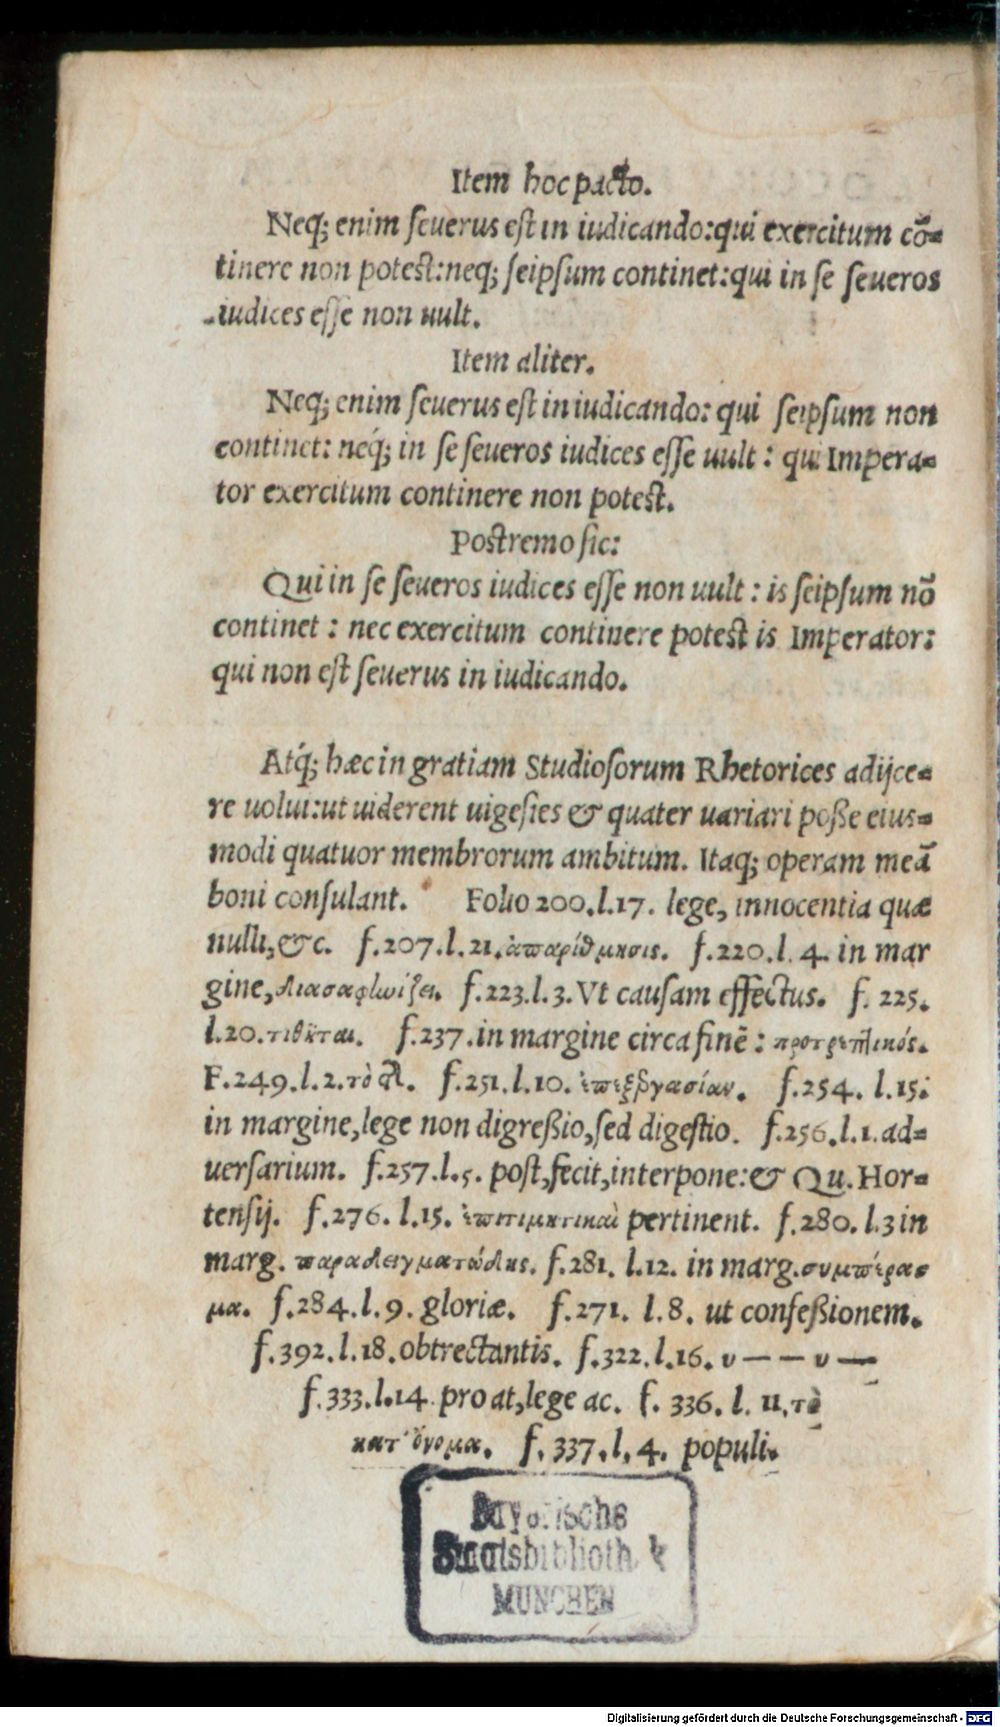 Item hoc pacto.
Neq; enim seuerus est in iudicando: qui exercitum cō-
tinere non potest: neq; seipsum continet: qui in se seueros
iudices esse non uult.
Item aliter.
Neq; enim seuerus est in iudicando: qui seipsum non
continet: neq́; in se seueros iudices esse uult: qui Impera-
tor exercitum continere non potest.
Postremo sic:
Qui in se seueros iudices esse non uult: is seipsum nō
continet: nec exercitum continere potest is Imperator:
qui non est seuerus in iudicando.
Atq́; hæc in gratiam Studiosorum Rhetorices adijce-
re uolui: ut uiderent uigesies & quater uariari posse eius-
modi quatuor membrorum ambitum. Itaq; operam meā
boni consulant. Folio 200.l.17. lege, innocentia quæ
nulli, &c. f.207.l.21. ἀπαρίθμησις. f.220.l.4. in mar
gine, διασαφωίζει. f.223.l.3. Vt causam effectus. f. 225.
l.20. τιθῆται. f.237. in margine circa finē: προτρεπτικός.
F.249.l.2. τὸ f.251.l.10. ἐπεξεργασίαν. f.254. l.15.
in margine, lege non digressio, sed digestio. f.256.l.1. ad-
uersarium. f.257.l.5. post, fecit, interpone: & Qu. Hor-
tensij. f.276. l.15. ἐπιτιμητικαὶ pertinent. f.280. l.3 in
marg. παραδειγματώδης. f.281. l.12. in marg. συμπέρασ
μα. f.284.l.9. gloriæ. f.271. l.8. ut confessionem.
f.392.l.18. obtrectantis. f.322.l.16. υ — — υ —
f.333.l.14. pro at, lege ac. f. 336. l. 11. τὸ
κατ' ὄνομα. f. 337.l.4. populi.
Bayerische
Staatsbibliothek
MÜNCHEN
Digitalisierung gefördert durch die Deutsche Forschungsgemeinschaft - DFG